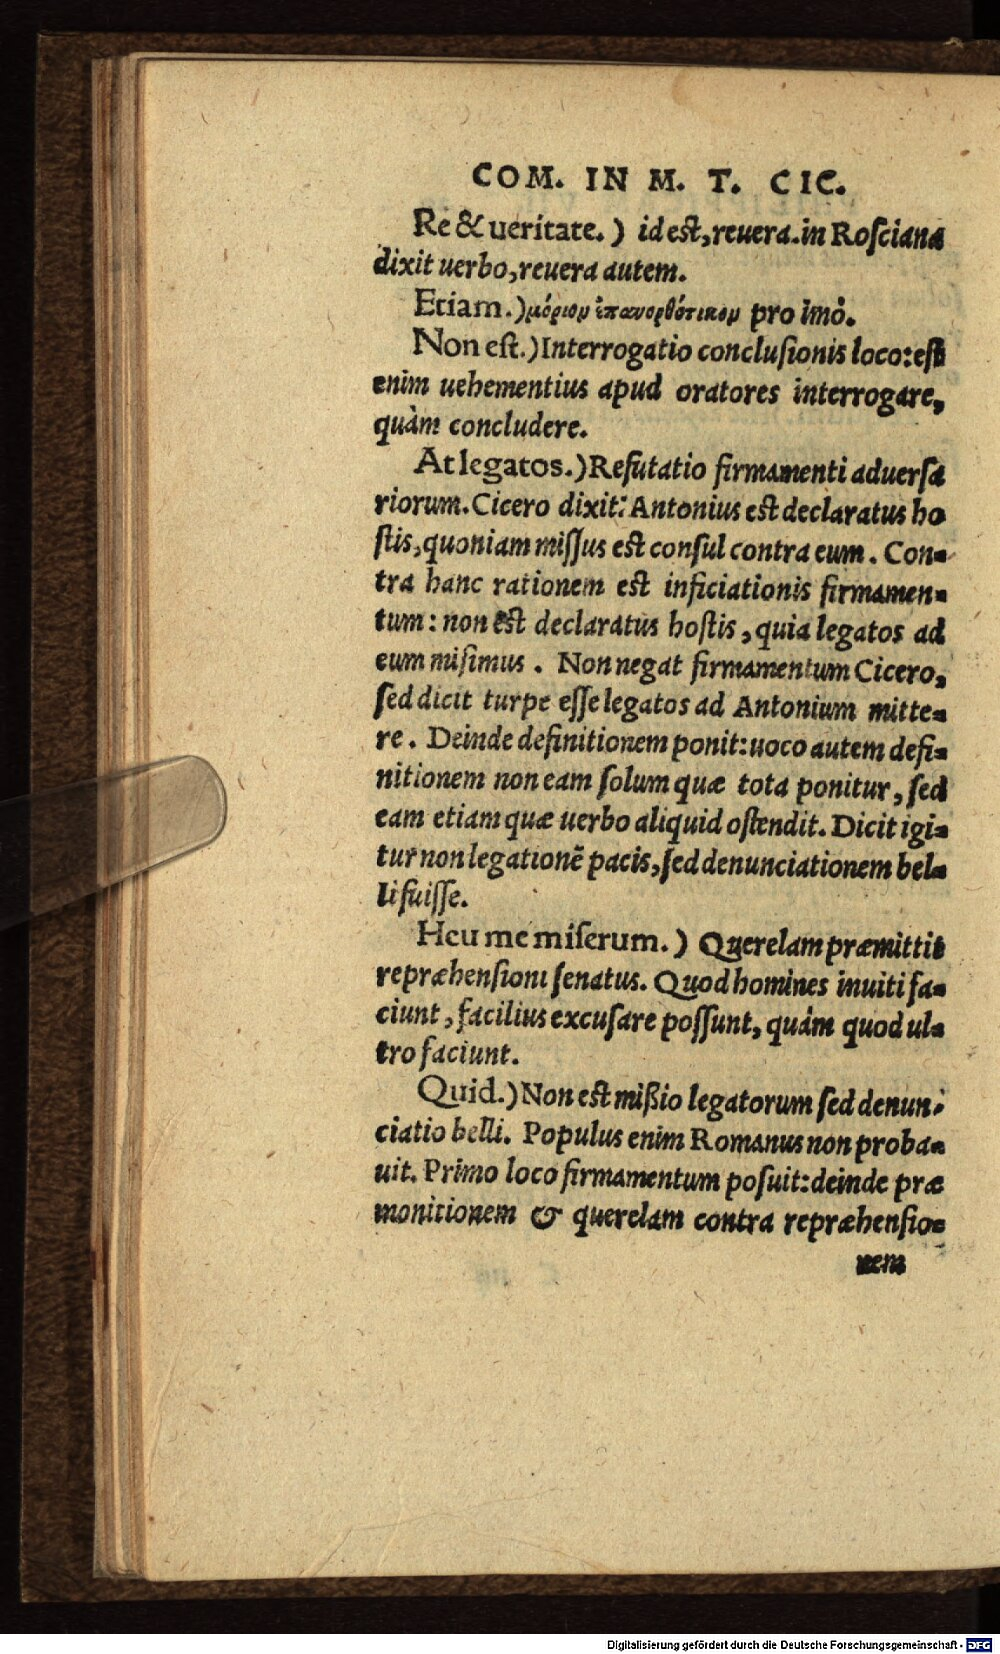 COM. IN M. T. CIC.
Re & ueritate.) id est, reuera. in Rosciana
dixit uerbo, reuera autem.
Etiam.) μόριον ἐπανορθότικον pro imò.
Non est.) Interrogatio conclusionis loco: est
enim uehementius apud oratores interrogare,
quàm concludere.
At legatos.) Refutatio firmamenti aduersa
riorum. Cicero dixit: Antonius est declaratus ho
stis, quoniam missus est consul contra eum. Con-
tra hanc rationem est inficiationis firmamen-
tum: non est declaratus hostis, quia legatos ad
eum misimus. Non negat firmamentum Cicero,
sed dicit turpe esse legatos ad Antonium mitte-
re. Deinde definitionem ponit: uoco autem defi-
nitionem non eam solum quæ tota ponitur, sed
eam etiam quæ uerbo aliquid ostendit. Dicit igi-
tur non legationẽ pacis, sed denunciationem bel-
li fuisse.
Heu me miserum.) Querelam præmittit
repræhensioni senatus. Quod homines inuiti fa-
ciunt, facilius excusare possunt, quàm quod ul-
tro faciunt.
Quid.) Non est mißio legatorum sed denun-
ciatio belli. Populus enim Romanus non proba-
uit. Primo loco firmamentum posuit: deinde præ
monitionem & querelam contra repræhensio-
nem
Digitalisierung gefördert durch die Deutsche Forschungsgemeinschaft - DFG